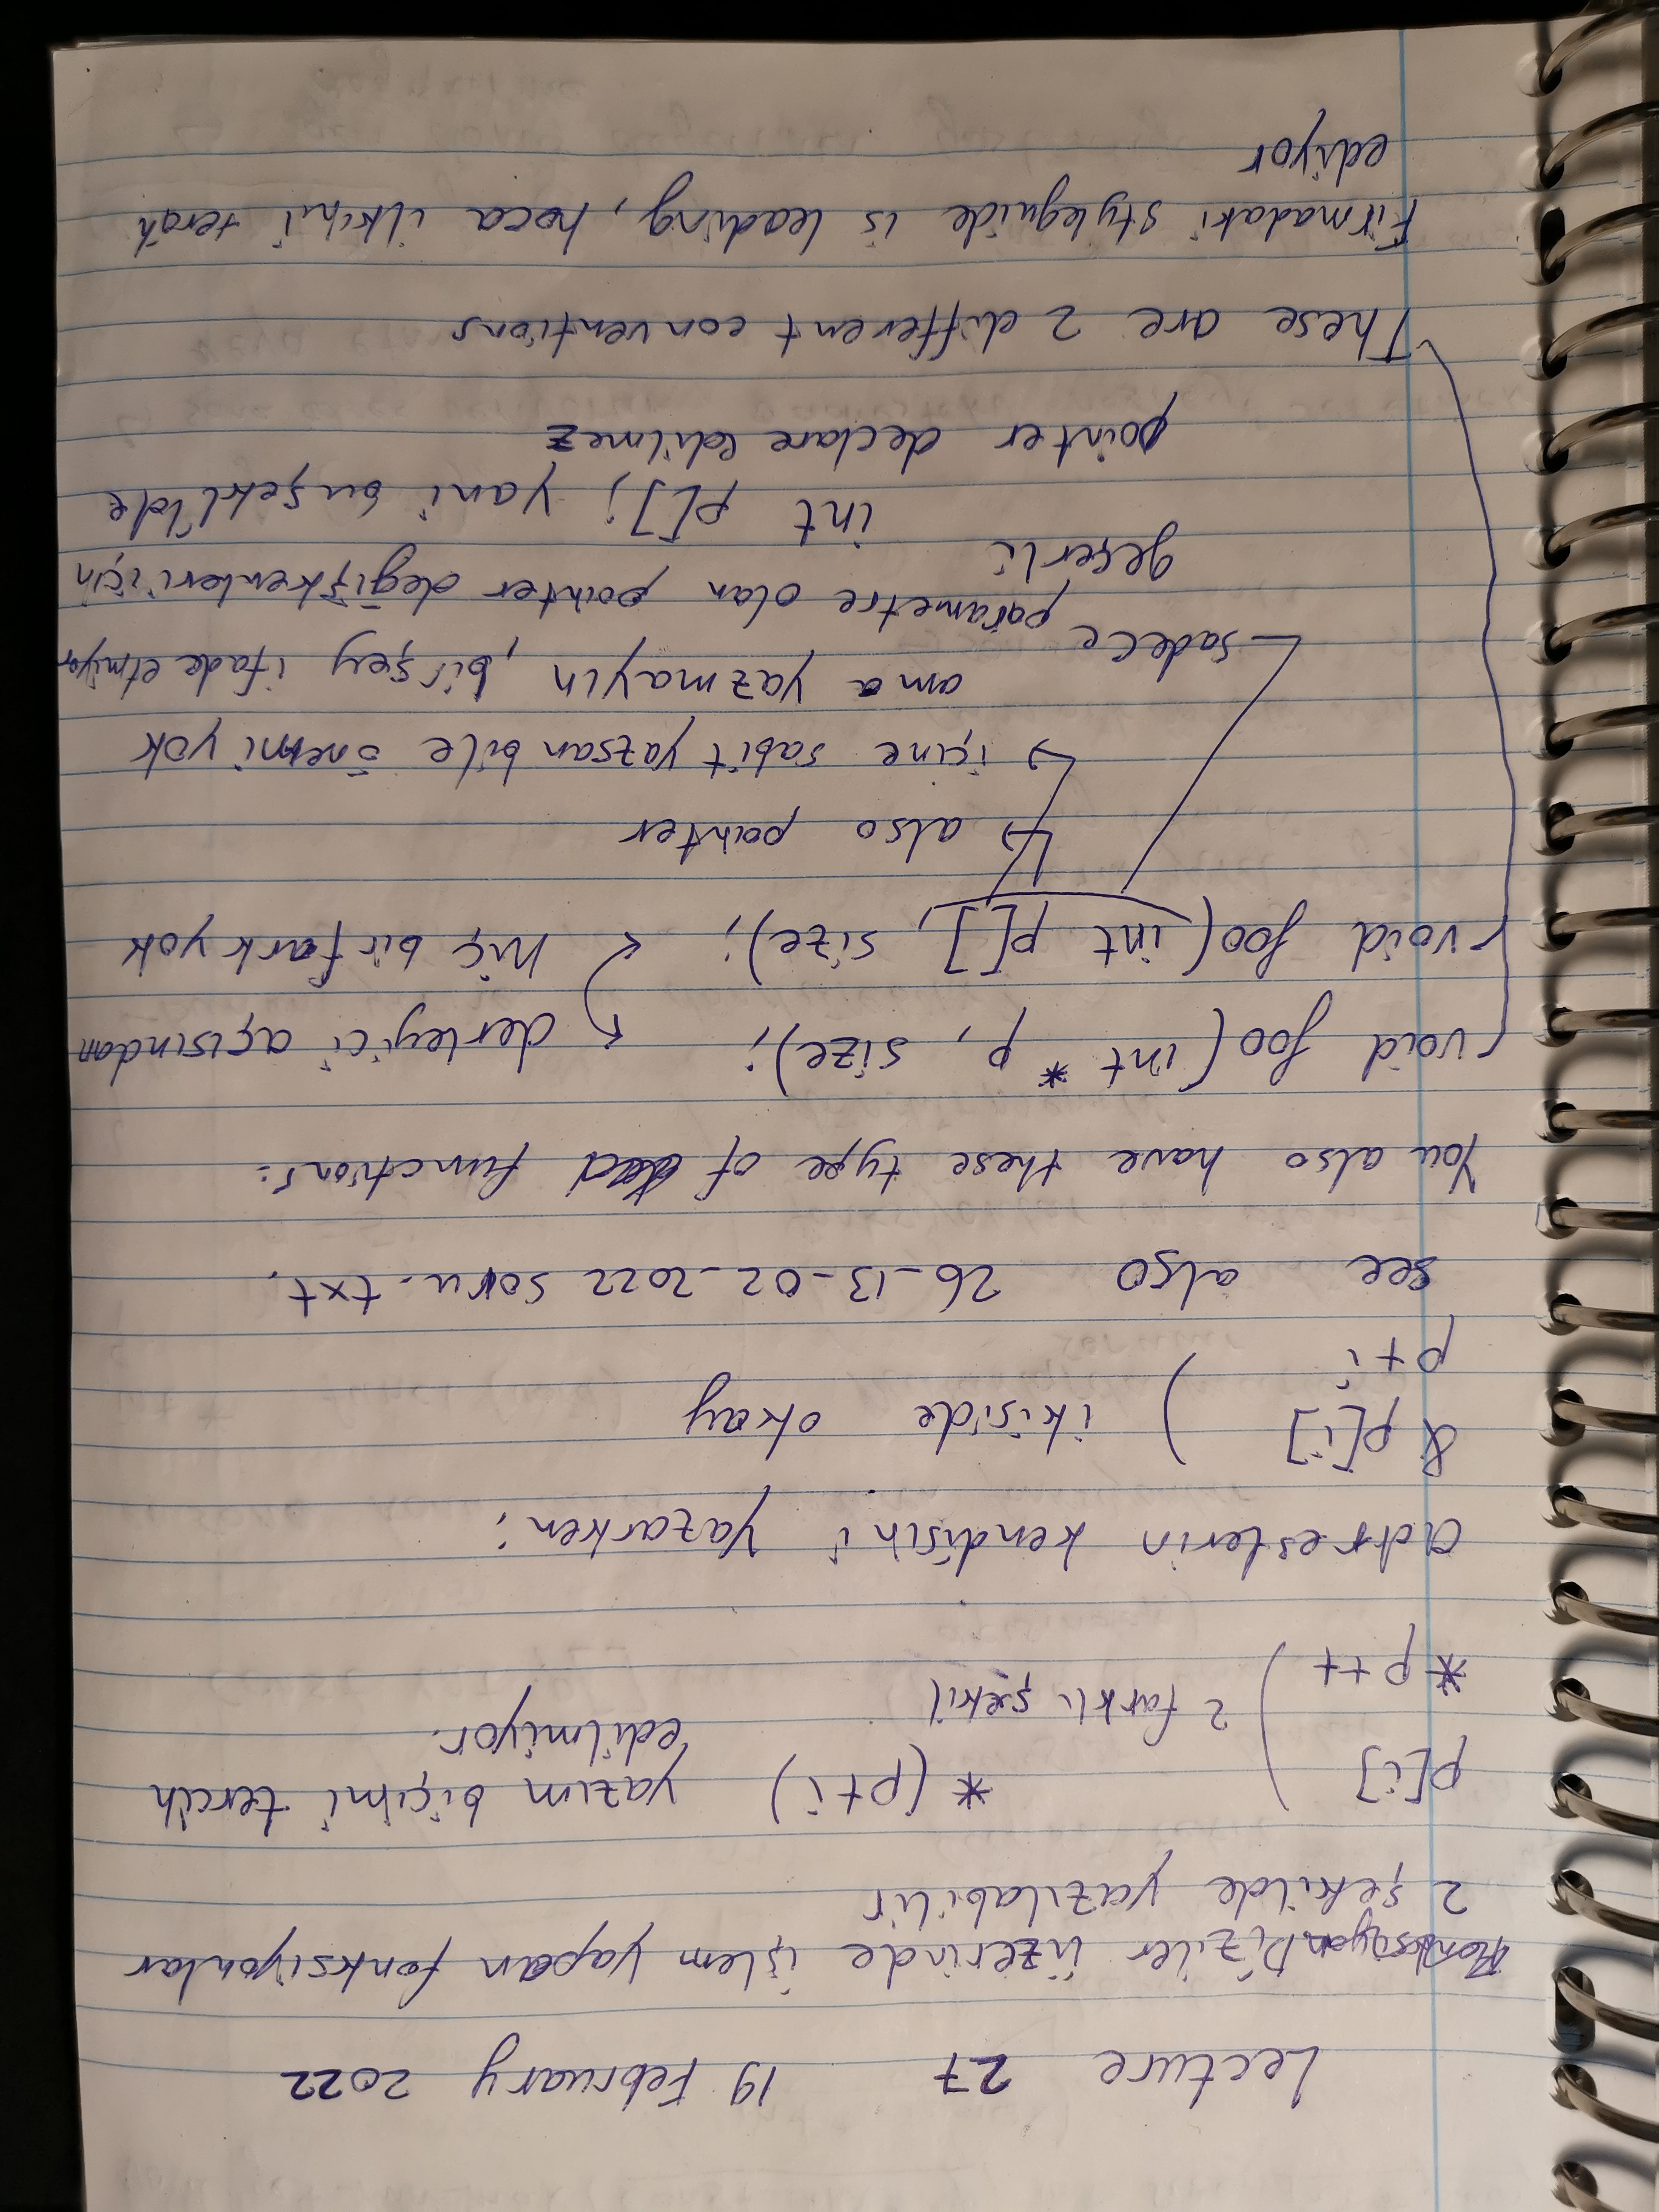 Lecture 27 19 February 2022
Diziler üzerinde işlem yapan fonksiyonlar
2 şekilde yazılabilir
p[i]
*p++
) 2 farklı şekil
*(p+i) yazım biçimi tercih
edilmiyor.
adreslerin kendisini yazarken;
& p[i]
p+i
) ikiside okay
see also 26_13_02_2022 soru.txt.
You also have these type of functions:
void foo(int * p, size);
void foo(int p[], size);
derleyici açısından
hiç bir fark yok
↳ also pointer
↳ içine sabit yazsan bile önemi yok
ama yazmayın, birşey ifade etmiyor
sadece parametre olan pointer değişkenleri için
geçerli
int p[]; yani bu şekilde
pointer declare edilmez
These are 2 different conventions
Firmadaki styleguide is leading, hoca ilkini tercih
ediyor